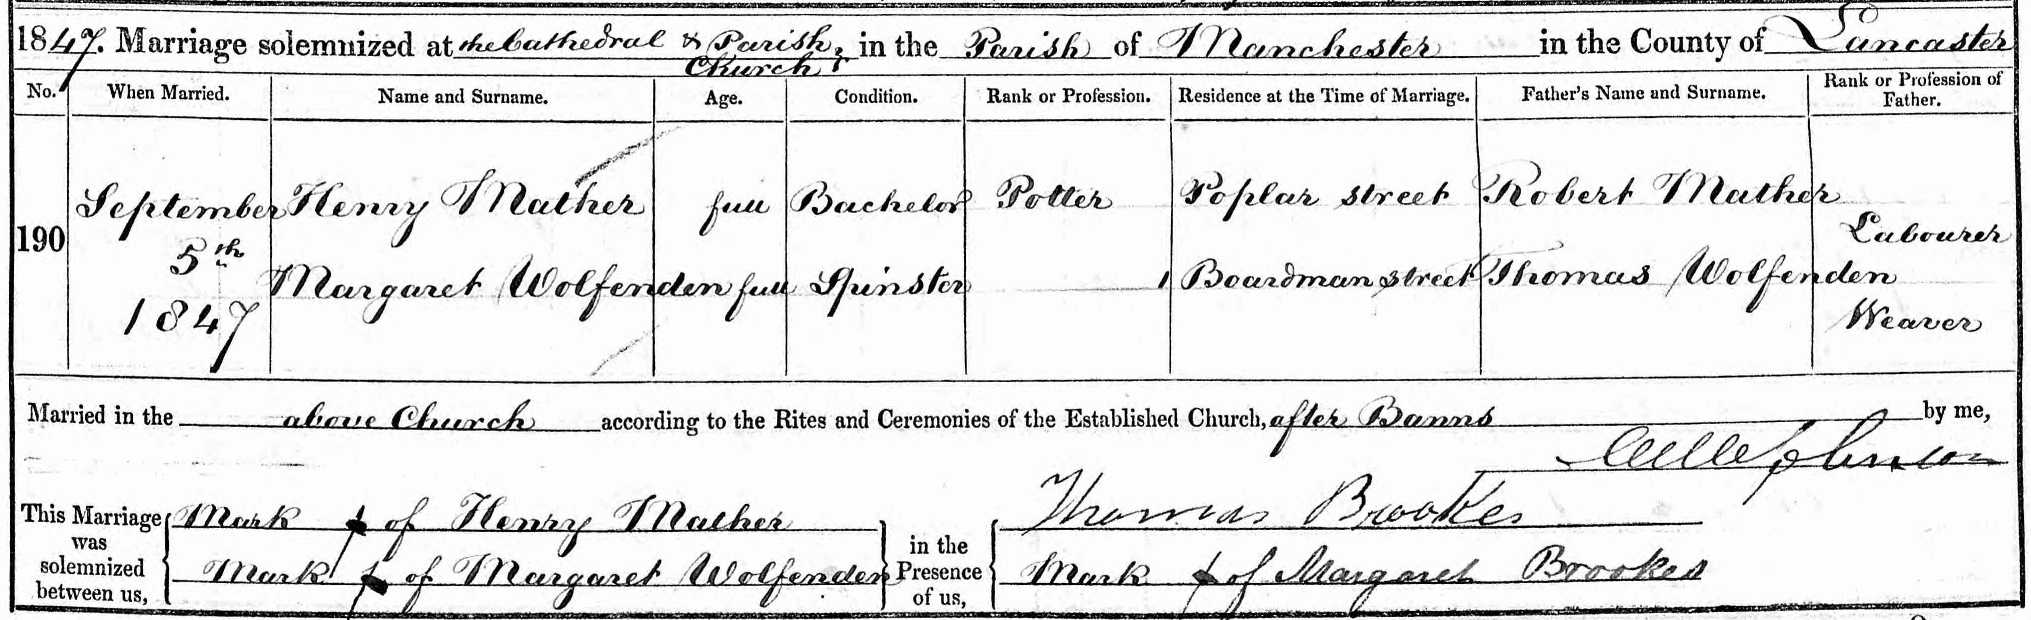 1847. Marriage solemnized at the Cathedral & Parish Church in the Parish of Manchester in the County of Lancaster
No. When Married. Name and Surname. Age. Condition. Rank or Profession. Residence at the Time of Marriage. Father's Name and Surname. Rank or Profession of Father.
190 September 5th 1847 Henry Mather full Bachelor Potter Poplar street Robert Mather Labourer
Margaret Wolfenden full Spinster Boardman street Thomas Wolfenden Weaver
Married in the above Church according to the Rites and Ceremonies of the Established Church, after Banns by me,
Johnson
This Marriage was solemnized between us, Mark of Henry Mather in the Presence of us, Thomas Brookes
Mark of Margaret Wolfenden Mark of Margaret Brookes